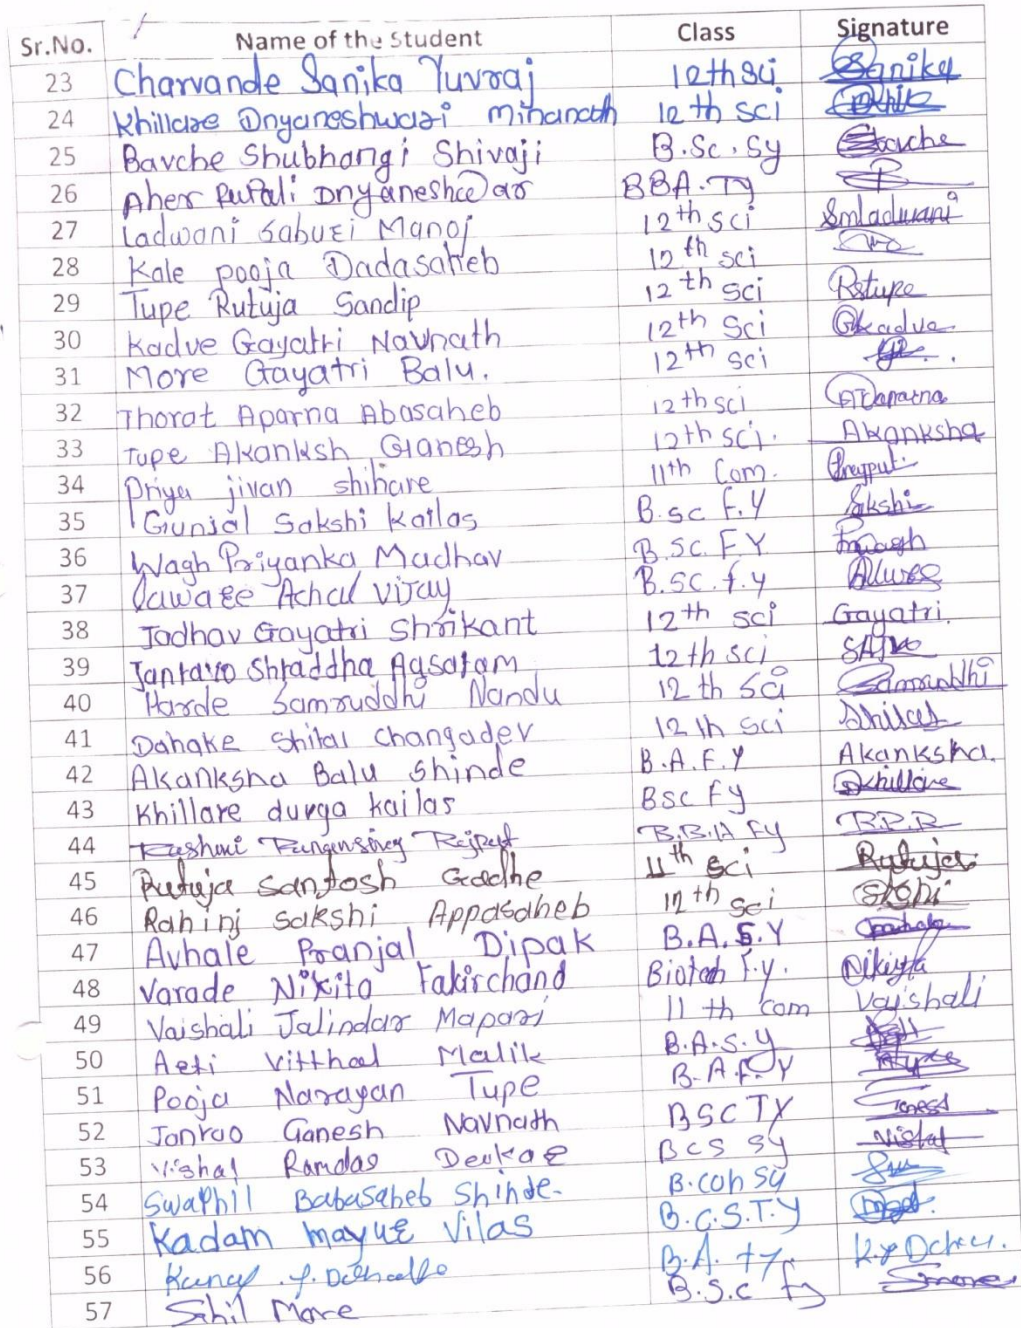 Sr.No. Name of the Student Class Signature
23 Charvande Sanika Yuvraj 12th Sci Sanika
24 Khillare Dnyaneshwari Minanath 12th sci
25 Bavche Shubhangi Shivaji B.Sc. Sy
26 Aher Rupali Dnyaneshwar BBA. Ty
27 Ladwani Saburi Manoj 12th sci Smladwani
28 Kale pooja Dadasaheb 12th sci
29 Tupe Rutuja Sandip 12th sci Rstupe
30 Kadve Gayatri Navnath 12th Sci Gkadve
31 More Gayatri Balu. 12th sci
32 Thorat Aparna Abasaheb 12th sci
33 Tupe Akanksh Ganesh 12th sci. Akanksha
34 Priya jivan shihare 11th Com.
35 Gunjal Sakshi Kailas B.sc F.Y Sakshi
36 Wagh Priyanka Madhav B.SC. F.Y
37 Achal Vijay B.SC. f.y
38 Jadhav Gayatri Shrikant 12th sci Gayatri.
39 Shraddha 12th sci
40 Harde Samruddhi Nandu 12th Sci Samruddhi
41 Dahake Shital Changadev 12th Sci
42 Akanksha Balu Shinde B.A.F.Y Akanksha.
43 Khillare durga kailas BSC Fy Dkhillare
44 B.B.A Fy R.P.R
45 Rutuja Santosh Gadhe 11th sci Rutuja
46 Rahinj Sakshi Appasaheb 12th sci
47 Avhale Pranjal Dipak B.A.S.Y
48 Varade Nikita Fakirchand Biotech F.y. Nikita
49 Vaishali Jalindar Mapari 11th com Vaishali
50 Arti Vitthal Malik B.A.S.Y
51 Pooja Narayan Tupe B.A F.Y
52 Janrao Ganesh Navnath BSC TY
53 Vishal Ramdas Deokar BCS SY Vishal
54 Swapnil Babasaheb Shinde. B.com Sy
55 Kadam mayur Vilas B.C.S.T.Y
56 B.A. ty
57 More B.S.c fy Smore